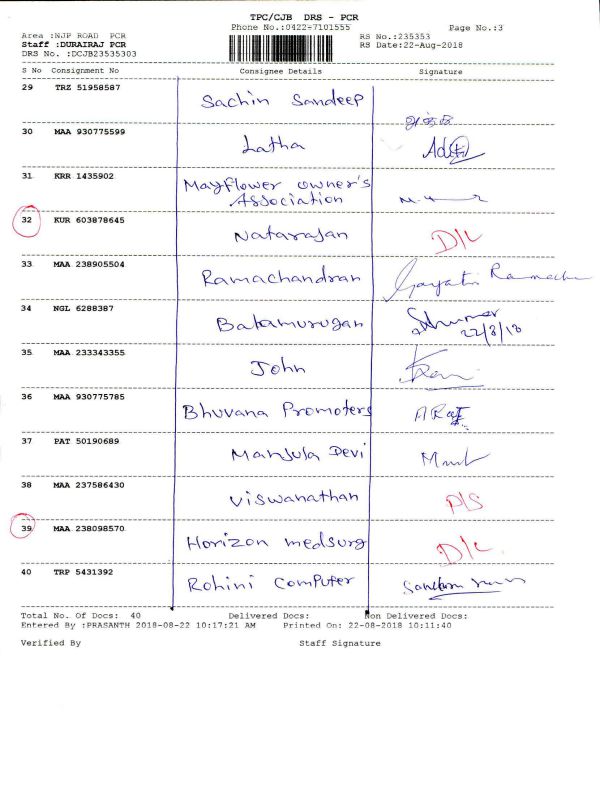 TPC/CJB DRS - PCR
Phone No.:0422-7101555
Page No.:3
Area :NJP ROAD PCR
RS No.:235353
Staff :DURAIRAJ PCR
RS Date:22-Aug-2018
DRS No. :DCJB23535303
S No Consignment No Consignee Details Signature
29 TRZ 51958587 Sachin Sandeep
30 MAA 930775599 Latha
31 KRR 1435902 Mayflower owner's
Association
32 KUR 603878645 Natarajan D/L
33 MAA 238905504 Ramachandran Gayatri
34 NGL 6288387 Balamurugan
22/8/18
35 MAA 233343355 John
36 MAA 930775785 Bhuvana Promoters
37 PAT 50190689 Manjula Devi
38 MAA 237586430 Viswanathan P/S
39 MAA 238098570 Horizon medsurg D/L
40 TRP 5431392 Rohini Computer
Total No. Of Docs: 40 Delivered Docs: Non Delivered Docs:
Entered By :PRASANTH 2018-08-22 10:17:21 AM Printed On: 22-08-2018 10:11:40
Verified By Staff Signature